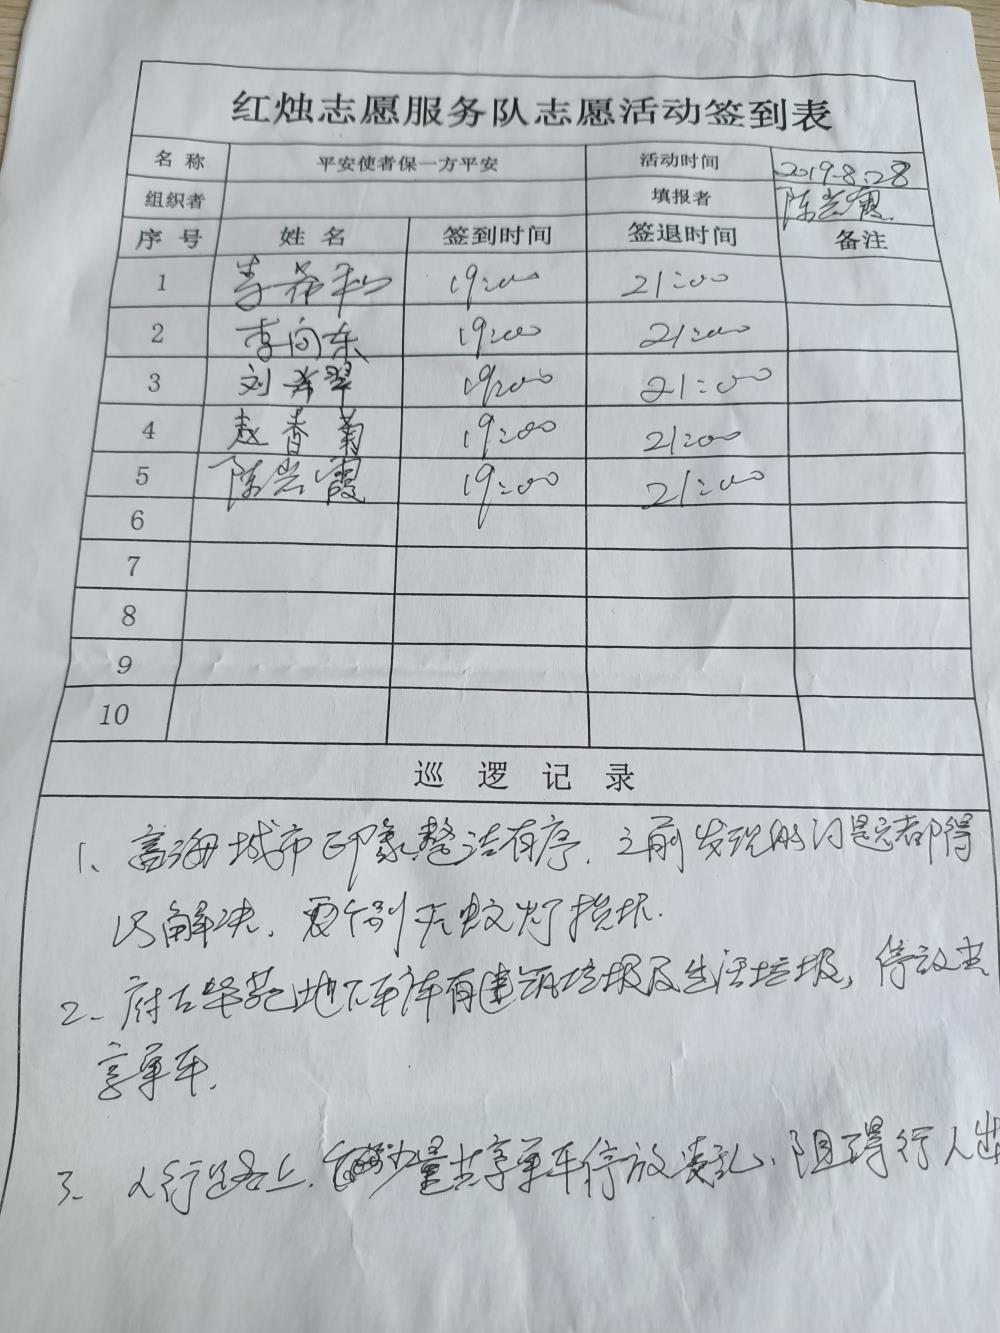 红烛志愿服务队志愿活动签到表
名 称 平安使者保一方平安 活动时间 2019-8.28
组织者 填报者 陈岩霞
序 号 姓 名 签到时间 签退时间 备注
1 李希 19:00 21:00
2 李向东 19:00 21:00
3 刘希翠 19:00 21:00
4 赵香菊 19:00 21:00
5 陈岩霞 19:00 21:00
6
7
8
9
10
巡 逻 记 录
1、富海城市印象整洁有序,之前发现的问题完都得
以解决,要个别灭蚊灯损坏.
2、府苑地下车库有建筑垃圾及生活垃圾,停放共
享单车.
3、人行道路上,少量共享单车停放紊乱、阻碍行人出